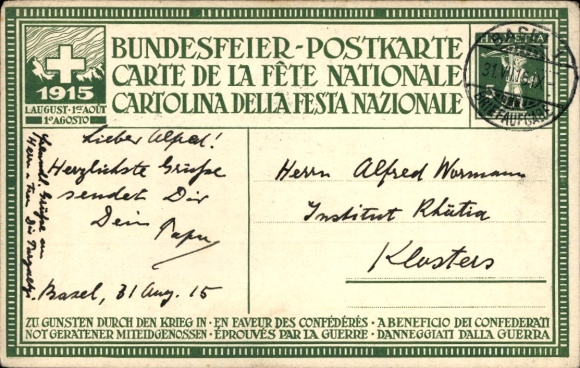 BUNDESFEIER-POSTKARTE
CARTE DE LA FÊTE NATIONALE
CARTOLINA DELLA FESTA NAZIONALE
1915
1. AUGUST · 1ER AOÛT
1O AGOSTO
HELVETIA
5
BASEL
BRIEFAUFGABE
Lieber Alfred!
Herzlichste Grüsse
sendet Dir
Dein Papa
Basel, 31 Aug. 15
Grüsse an
Herrn
Herrn Alfred Wormann
Institut Rhätia
Klosters
ZU GUNSTEN DURCH DEN KRIEG IN · EN FAVEUR DES CONFÉDÉRÉS · A BENEFICIO DEI CONFEDERATI
NOT GERATENER MITEIDGENOSSEN · ÉPROUVÉS PAR LA GUERRE · DANNEGGIATI DALLA GUERRA